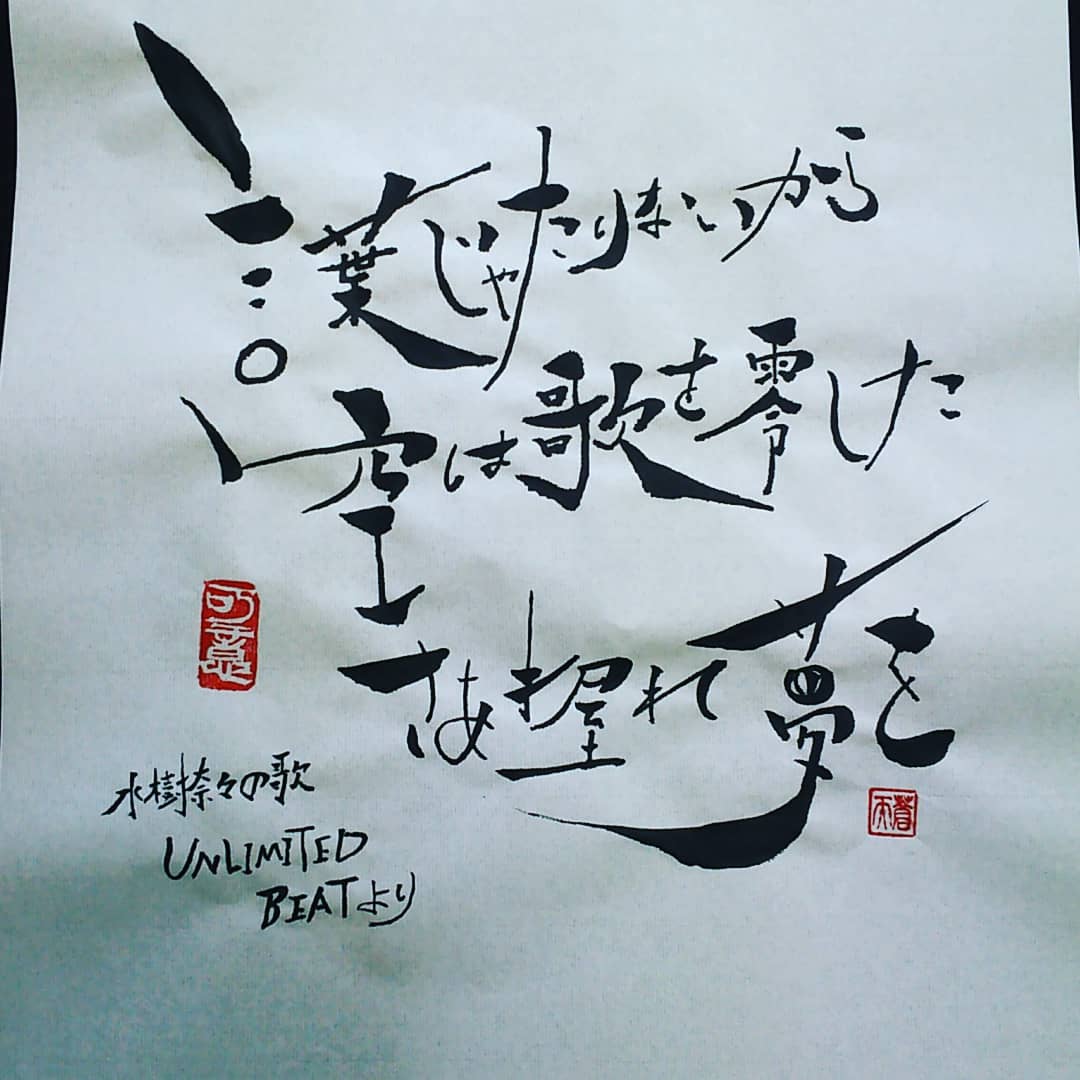 言葉じゃたりないから
空は歌を零した
さあ握れ夢を
水樹奈々の歌
UNLIMITED
BEATより